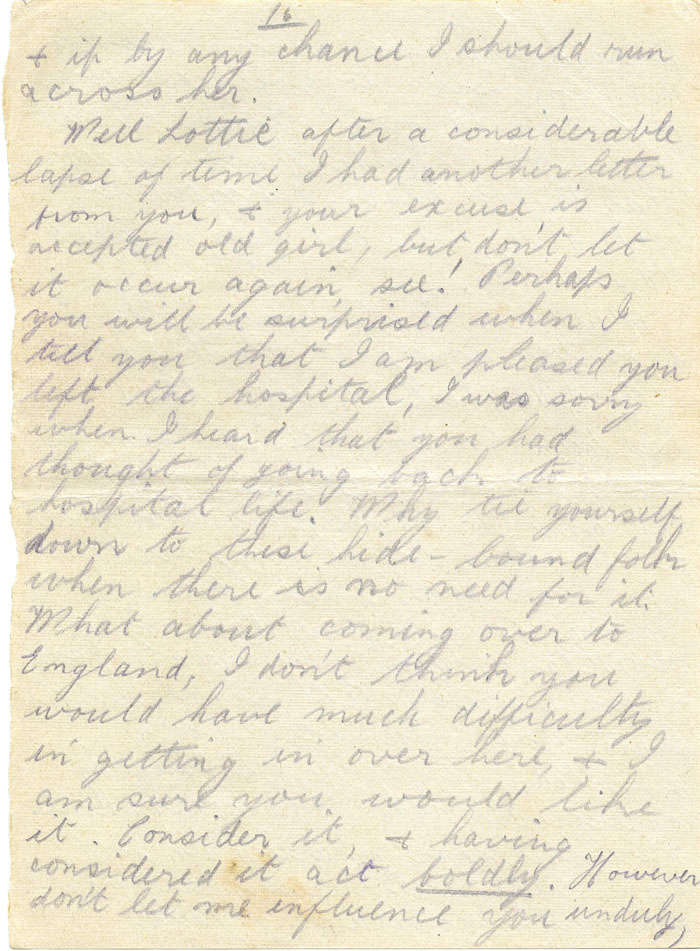 16
+ if by any chance I should run
across her.
Well Lottie after a considerable
lapse of time I had another letter
from you, + your excuse is
accepted old girl, but don't let
it occur again, see! Perhaps
you will be surprised when I
tell you that I am pleased you
left the hospital, I was sorry
when I heard that you had
thought of going back to
hospital life. Why tie yourself
down to these hide-bound folk
when there is no need for it.
What about coming over to
England, I don't think you
would have much difficulty
in getting in over here, + I
am sure you would like
it. Consider it, + having
considered it act boldly. However
don't let me influence you unduly,